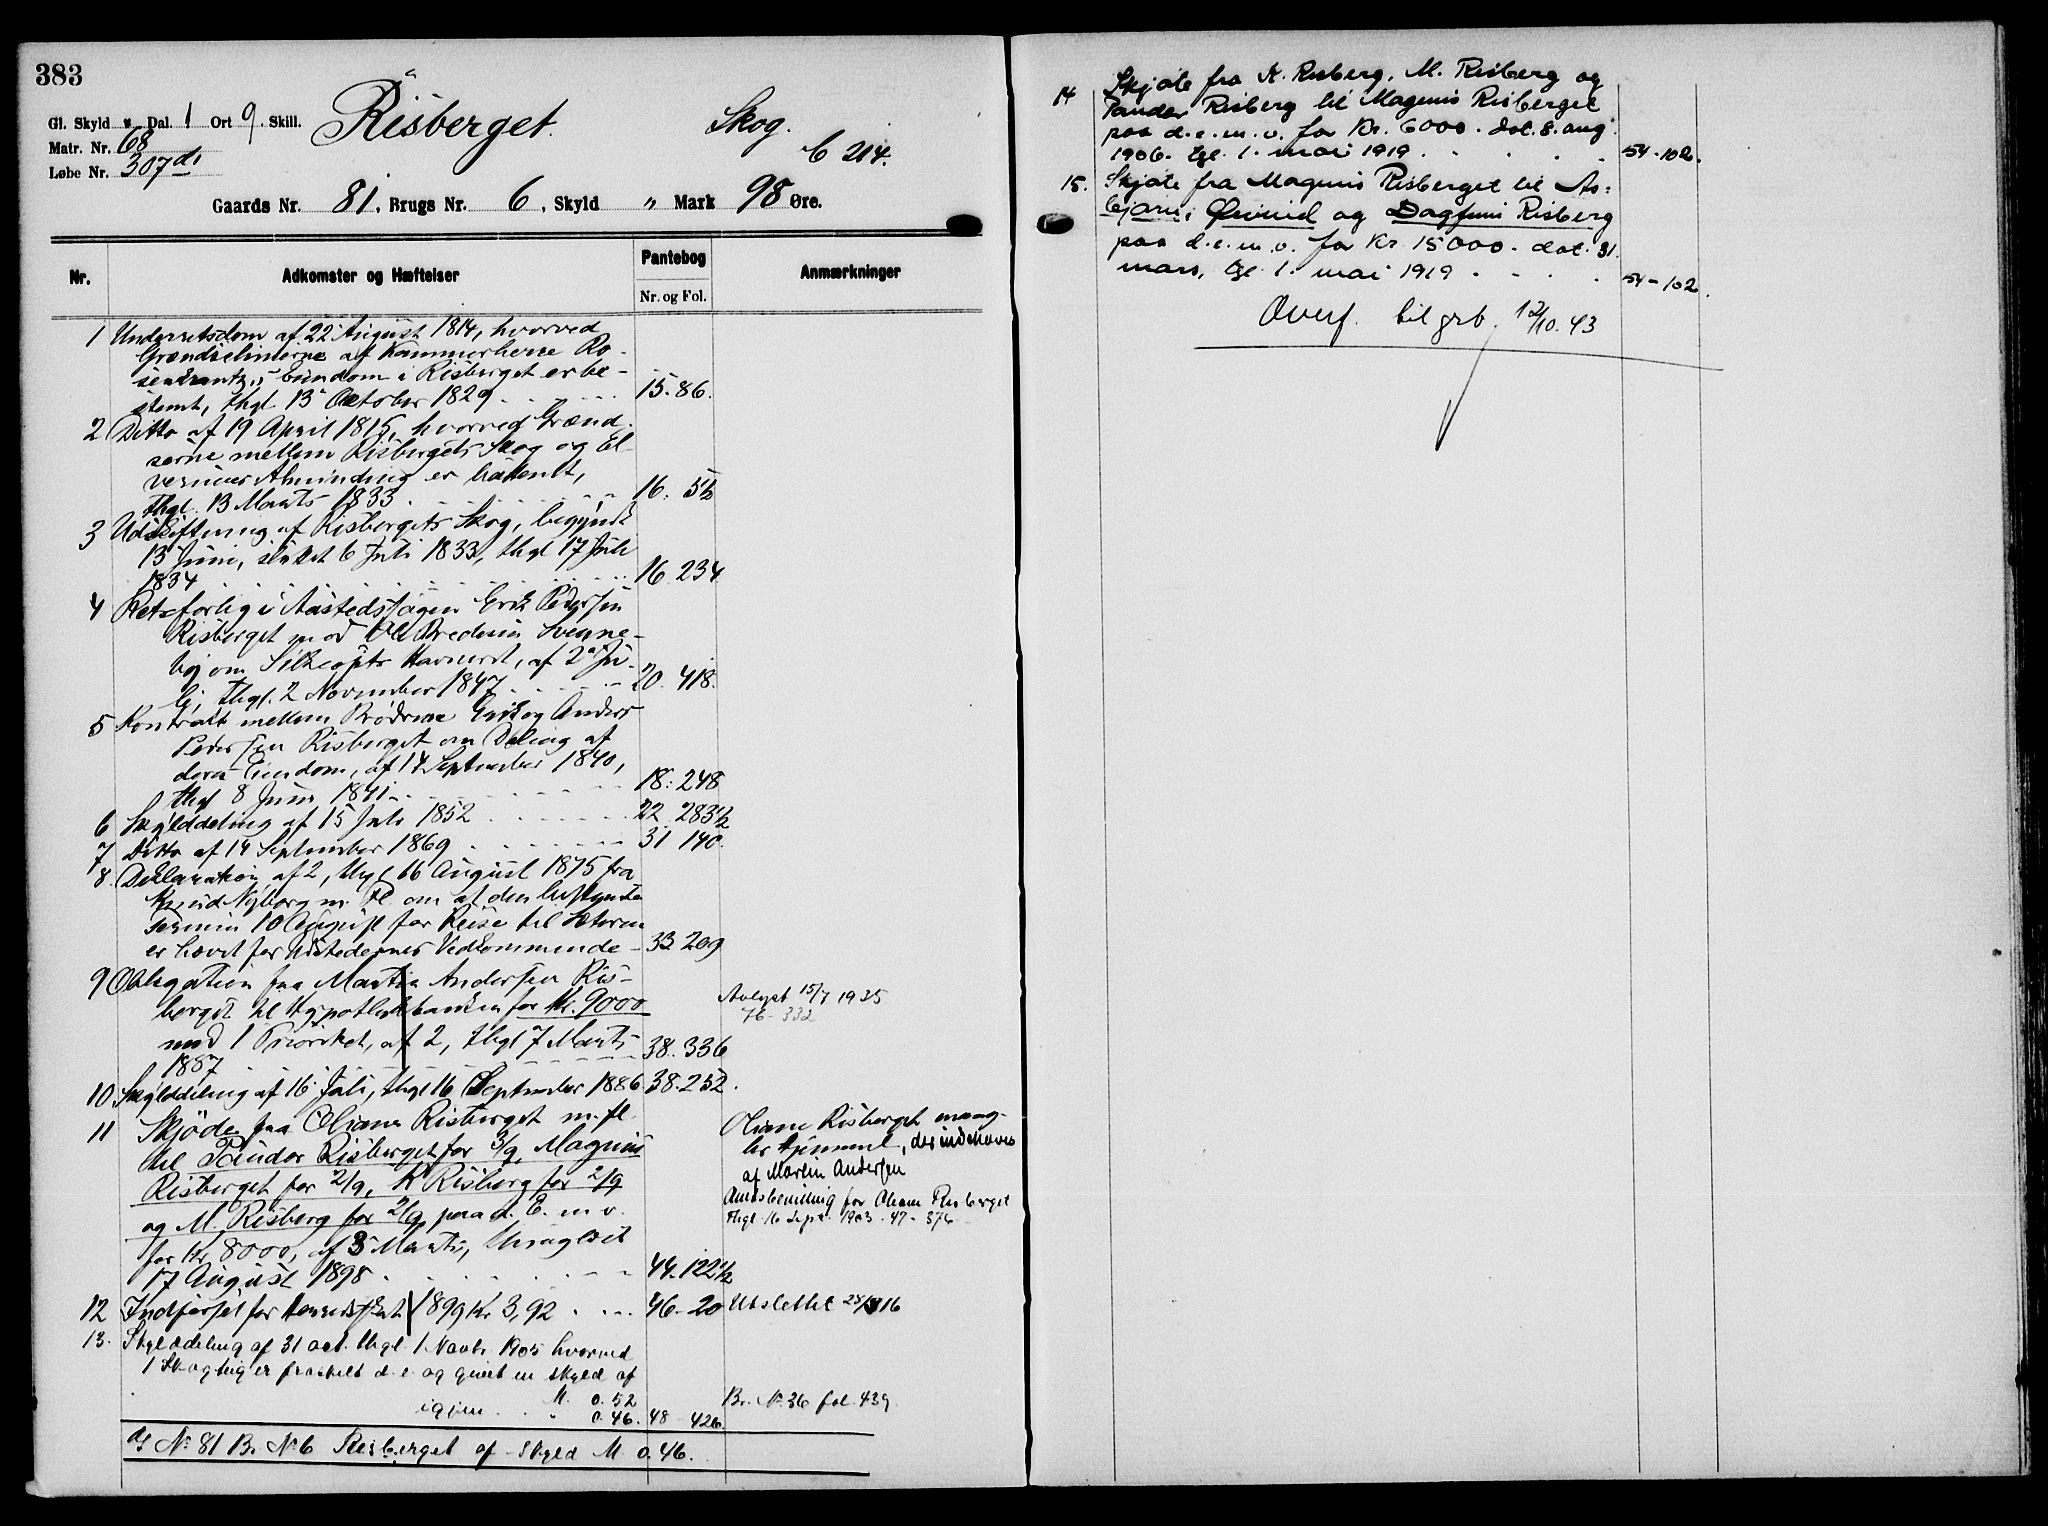 383
Risberget. Skog. b 214.
Gl. Skyld " Dal. 1 Ort 9 Skill.
Matr. Nr. 68
Løbe Nr. 307 d1
Gaards Nr. 81, Brugs Nr. 6, Skyld " Mark 98 Øre.
Nr. Adkomster og Hæftelser Pantebog Nr. og Fol. Anmærkninger
1 Underretsdom af 22 August 1814, hvorved
Grændselinierne af Kammerherre Ro-
senkrantz's Eiendom i Risberget er be-
stemt, thgl 13 Oktober 1829 15. 86.
2 Ditto af 19 April 1815, hvorved Grænd-
serne mellem Risbergets Skog og El-
verums Alminding er bestemt,
thgl. 13 Marts 1833 16. 5 1/2
3 Udskiftning af Risbergets Skog, begyndt
13 Juni, sluttet 6 Juli 1833, thgl 17 Juli
1834 16 234
4 Retsforlig i Aastedssagen Erik Pedersen
Risberget mod Ole Svenne-
by om Havneret, af 2 Ju-
li, thgl. 2 November 1847 20. 418.
5 Kontrakt mellem Brødrene Erik og Anders
Pedersen Risberget om Deling af
deres Eiendom, af 14 September 1840,
thgl 8 Juni 1841 18: 248
6 Skylddeling af 15 Juli 1852 22 283 1/2
7 Ditto af 14 September 1869 31 140.
8. Deklaration af 2, thgl 16 August 1875 fra
Knud Nyborg m. Fl. om at den
Termin 10 August for Reise til Sæteren
er hævet for Udstedernes Vedkommende 33 209
9 Obligation fra Martin Andersen Ris-
berget til Hypothekbanken for Kr. 9000
med 1 Prioritet, af 2, thgl 7 Marts
1887 38. 336
Avlyst 15/7 1935
76-332
10 Skylddeling af 16 Juli, thgl 16 September 1886 38. 252.
11 Skjøde fra Oliane Risberget m. fl.
til Pauder Risberget for 3/9, Magnus
Risberget for 2/9, K Risberg for 2/9
og M. Risberg for 2/9 paa d. E. m. v.
for Kr. 8000, af 3 Marts, thinglæst
17 August 1898 44. 122 1/2
Oliane Risberget mang-
ler Hjemmel, der indehaves
af Martin Andersen
Amtsbevilling for Oliane Risberget
thgl. 16 Sept. 1903 - 47 - 376
12 Indførsel for 1899 Kr 3,92 46. 20 Utslettet 16
13. Skylddeling af 31 oct. thgl 1 Novbr. 1905 hvorved
1 Skogteig er fraskilt d. e. og givet en skyld af
M. 0.52 Br. No. 36 fol. 439.
igjen " 0.46. 48 - 426.
Gs No 81 Br. No 6 Risberget af Skyld M. 0.46.
14 Skjøte fra K. Risberg, M. Risberg og
Pauder Risberg til Magnus Risberget
paa d. e. m. v. for Kr. 6000. dat. 8. aug.
1906. tgl. 1. mai 1919 54 - 102.
15. Skjøte fra Magnus Risberget til As-
bjørn, Øivind og Dagfinn Risberg
paa d. e. m. v. for Kr 15000. dat. 31.
mars, tgl 1. mai 1919 54 - 102.
Overf. til grb. 12/10. 43